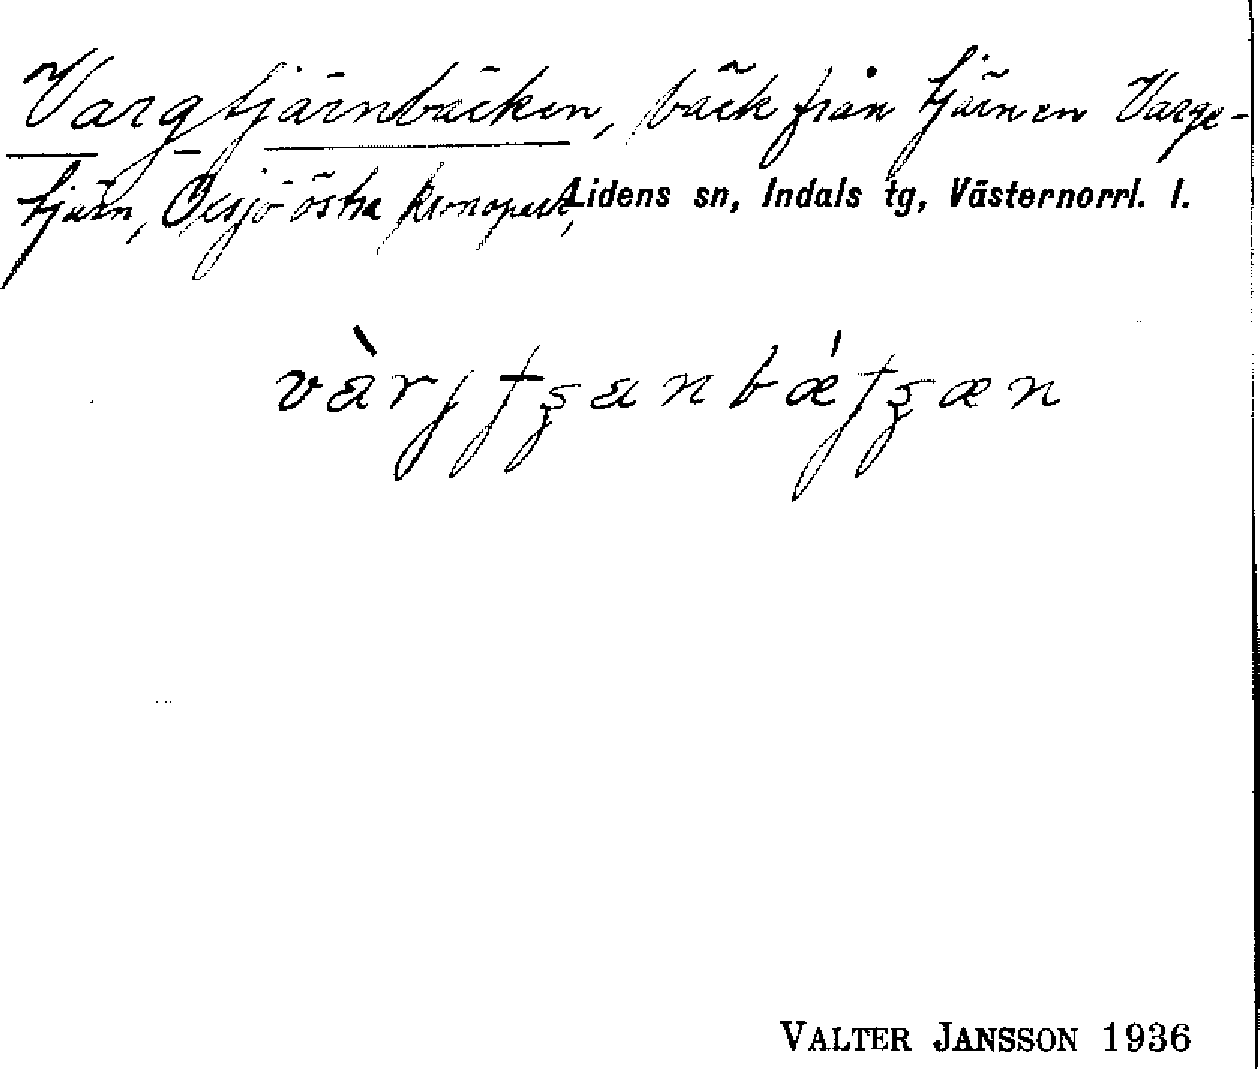 Vargtjärnbäcken, bäck från tjärnen Varge-
tjärn, östra kronopark, Lidens sn, Indals tg, Västernorrl. l.
VALTER JANSSON 1936